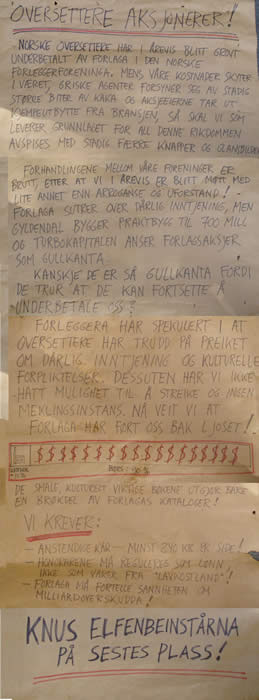 OVERSETTERE AKSJONERER!
NORSKE OVERSETTERE HAR I ÅREVIS BLITT GROVT
UNDERBETALT AV FORLAGA I DEN NORSKE
FORLEGGERFORENINGA. MENS VÅRE KOSTNADER SKYTER
I VÆRET, GRISKE AGENTER FORSYNER SEG AV STADIG
STØRRE BITER AV KAKA OG AKSJEEIERNE TAR UT
KJEMPEUTBYTTE FRA BRANSJEN, SÅ SKAL VI SOM
LEVERER GRUNNLAGET FOR ALL DENNE RIKDOMMEN
AVSPISES MED STADIG FÆRRE KNAPPER OG GLANSBILDER
FORHANDLINGENE MELLOM VÅRE FORENINGER ER
BRUTT, ETTER AT VI I ÅREVIS ER BLITT MØTT MED
LITE ANNET ENN ARROGANSE OG UFORSTAND!
FORLAGA SUTRER OVER DÅRLIG INNTJENING, MEN
GYLDENDAL BYGGER PRAKTBYGG TIL 700 MILL
OG TURBOKAPITALEN ANSER FORLAGSAKSJER
SOM GULLKANTA.
KANSKJE DE ER SÅ GULLKANTA FORDI
DE TRUR AT DE KAN FORTSETTE Å
UNDERBETALE OSS?
FORLEGGERA HAR SPEKULERT I AT
OVERSETTERE HAR TRUDD PÅ PREIKET
OM DÅRLIG INNTJENING OG KULTURELLE
FORPLIKTELSER. DESSUTEN HAR VI IKKE
HATT MULIGHET TIL Å STREIKE OG INGEN
MEKLINGSINSTANS. NÅ VEIT VI AT
FORLAGA HAR FØRT OSS BAK LJOSET!
$ $ $ $ $ $ $ $ $ $ $ $ $ $ $ $ $ $
DE SMALE, KULTURELT VIKTIGE BØKENE UTGJØR BARE
EN BRØKDEL AV FORLAGAS KATALOGER!
VI KREVER:
– ANSTENDIGE KÅR – MINST 240 KR PR SIDE!
– HONORARENE MÅ REGULERES SOM LØNN,
IKKE SOM VARER FRA "LAVKOSTLAND"!
– FORLAGA MÅ FORTELLE SANNHETEN OM
MILLIARDOVERSKUDDA!
KNUS ELFENBEINSTÅRNA
PÅ SESTES PLASS!